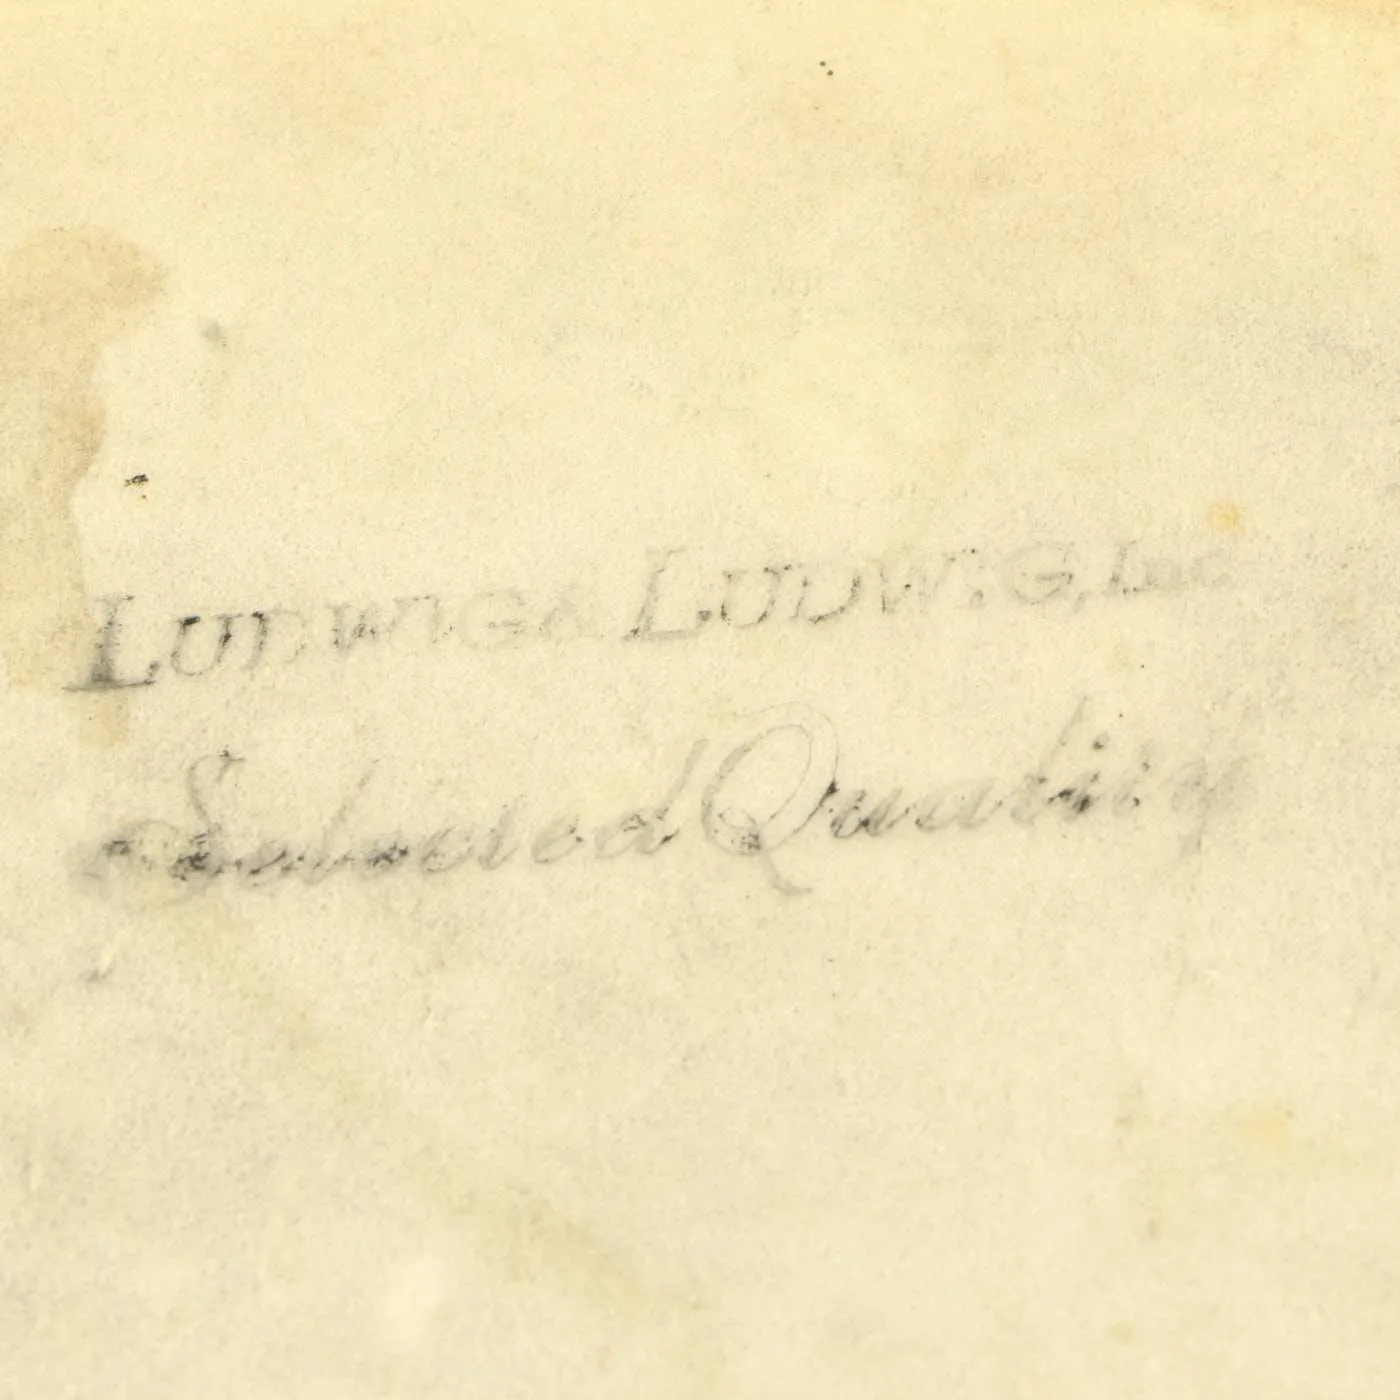 LUDWIG & LUDWIG, Inc
Selected Quality